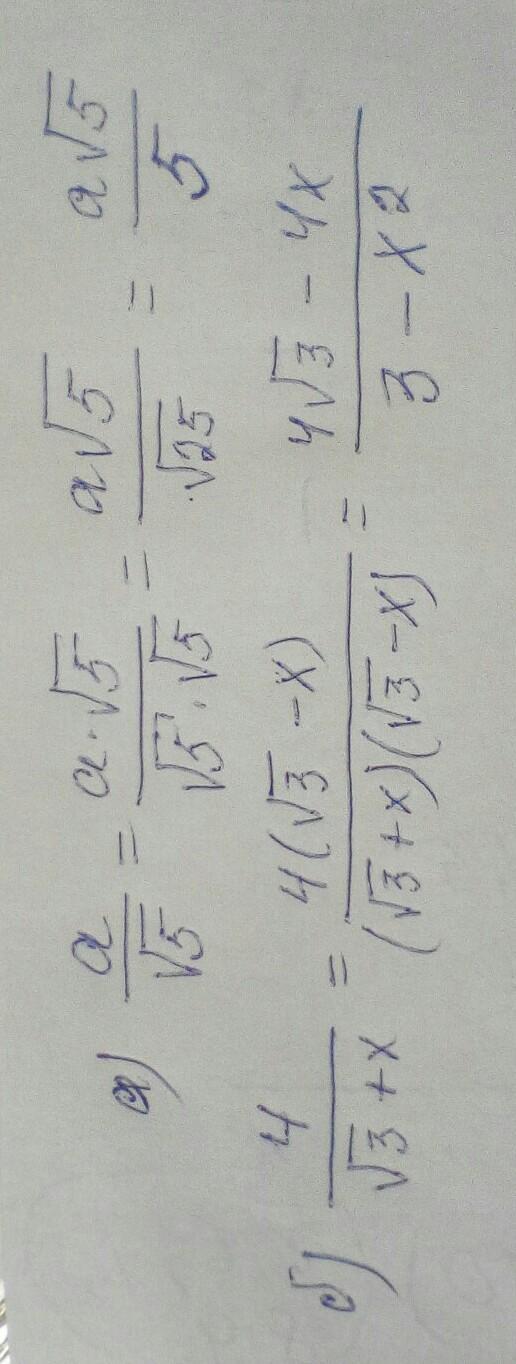 а) a/√5 = a·√5/√5·√5 = a√5/√25 = a√5/5
б) 4/√3+x = 4(√3-x)/(√3+x)(√3-x) = 4√3-4x/3-x²